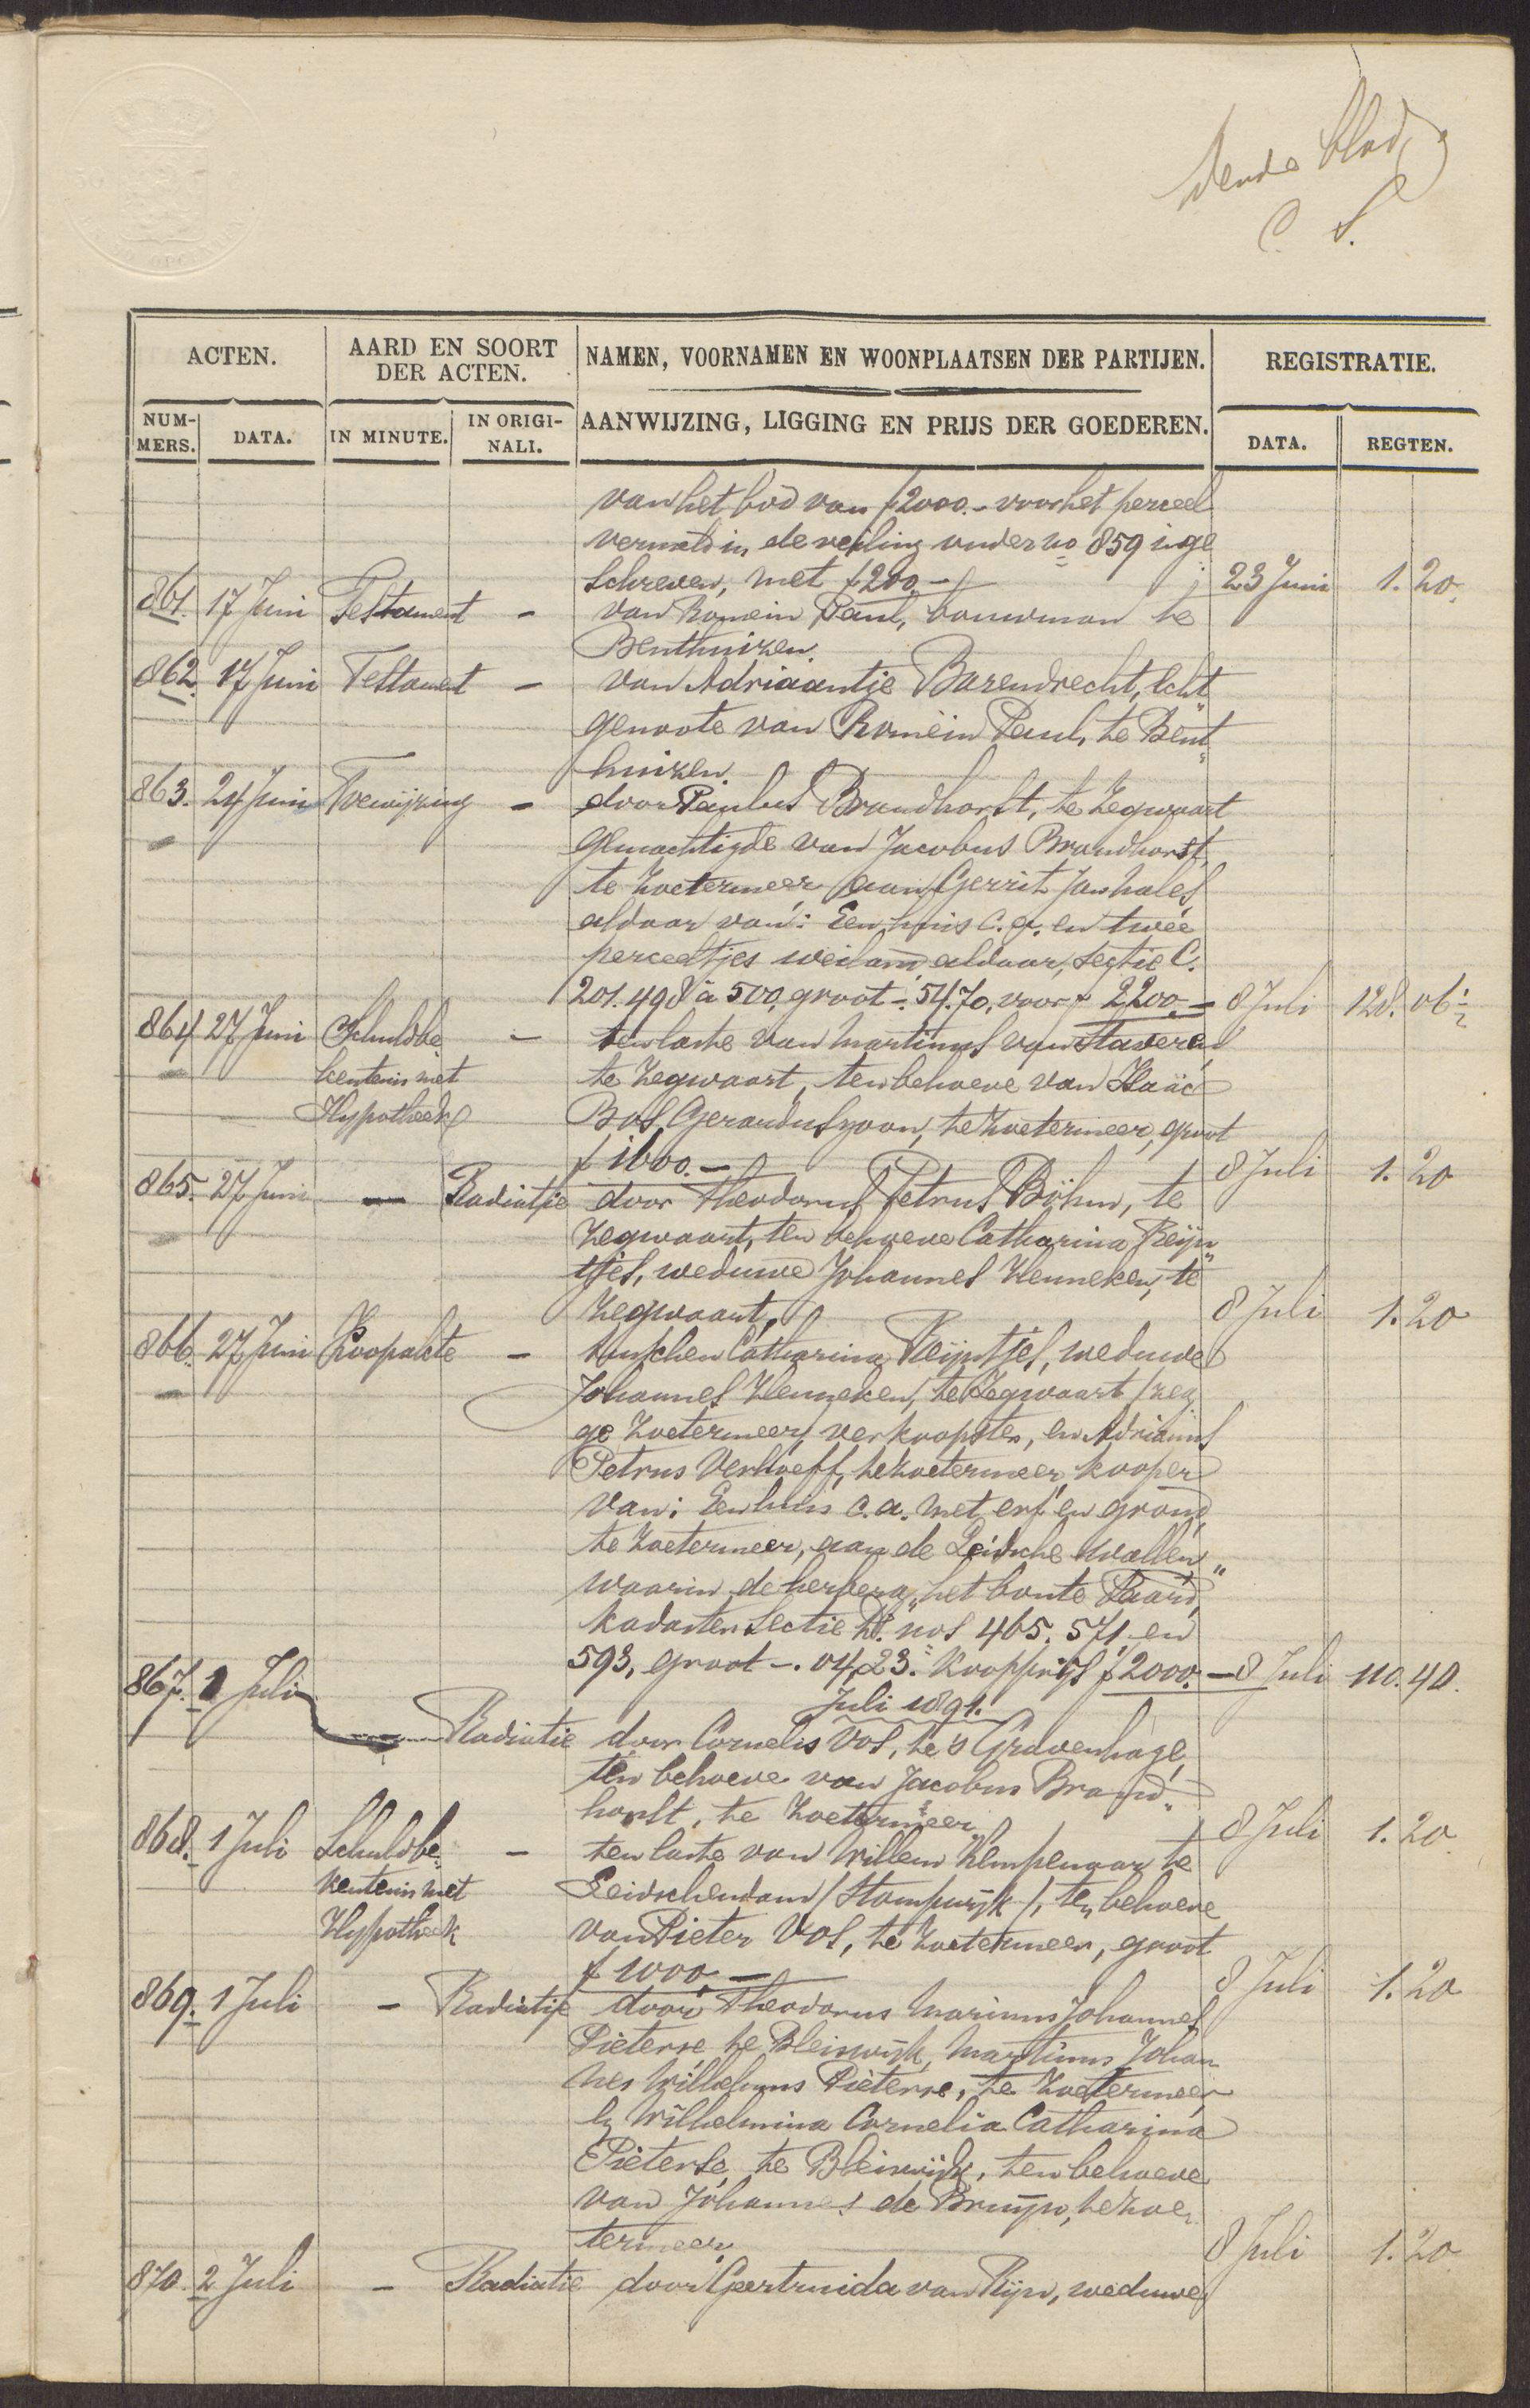 blad
C S.
ACTEN.
AARD EN SOORT
DER ACTEN.
NAMEN, VOORNAMEN EN WOONPLAATSEN DER PARTIJEN.
REGISTRATIE.
NUM-
MERS.
DATA.
IN MINUTE.
IN ORIGI-
NALI.
AANWIJZING, LIGGING EN PRIJS DER GOEDEREN.
DATA.
REGTEN.
van het bod van f 2000.- voor het perceel
vermeld in de veiling onder no 859 inge
schreven, met f 200.- 23 Juni 1.20.
861. 17 Juni Testament - van Romein Paul, bouwman te
Benthuizen.
862. 17 Juni Testament - van Adriaantje Barendrecht, Echt"
genoote van Romein Paul, te Bent"
huizen.
863. 24 Juni Toewijzing - door Paulus Brandhorst, te Zegwaart
gemachtigde van Jacobus Brandhorst,
te Zoetermeer, aan Gerrit Jan
aldaar van: Een huis c.a. en twee
perceeltjes weiland aldaar, sectie C.
201. 498 à 500, groot -.54.70, voor f 2200.- 8 Juli 128.06½
864 27 Juni Schuldbe" - ten laste van Martinus van Staveren
kentenis met te Zegwaart, ten behoeve van Isaäc
Hypotheek Bos Gerarduszoon, te Zoetermeer, groot
f 1600.- 8 Juli 1.20
865. 27 Juni - Radiatie door Theodorus Petrus Böhm, te
Zegwaart, ten behoeve Catharina Reijn"
tjes, weduwe Johannes Henneken, te
Zegwaart. 8 Juli 1.20
866. 27 Juni Koopakte - tusschen Catharina Reijntjes, weduwe
Johannes Henneken, te Zegwaart /zeg
ge Zoetermeer/ verkoopster, en Adrianus
Petrus Verhoeff, te Zoetermeer, kooper
van: Een huis c.a. met erf en grond,
te Zoetermeer, aan de Leidsche wallen"
waarin de herberg "het bonte Paard,"
kadaster sectie D. nos 465. 571 en
593, groot -.04.23. Koopprijs f 2000.- 8 Juli 110.40.
Juli 1891.
867. 1 Juli - Radiatie door Cornelis Vos, te 's Gravenhage,
ten behoeve van Jacobus Brand"
horst, te Zoetermeer. 8 Juli 1.20
868. 1 Juli Schuldbe" - ten laste van Willem Kempenaar te
kentenis met Leidschendam /Stompwijk/, ten behoeve
Hypotheek van Pieter Vos, te Zoetermeer, groot
f 1000.- 8 Juli 1.20
869. 1 Juli - Radiatie door Theodorus Marinus Johannes
Pieterse te Bleiswijk, Martinus Johan
nes Wilhelmus Pieterse, te Zoetermeer
en Wilhelmina Cornelia Catharina
Pieterse te Bleiswijk, ten behoeve
van Johannes de Bruijn, te Zoe
termeer. 8 Juli 1.20
870. 2 Juli - Radiatie door Geertruida van Rijn, weduwe